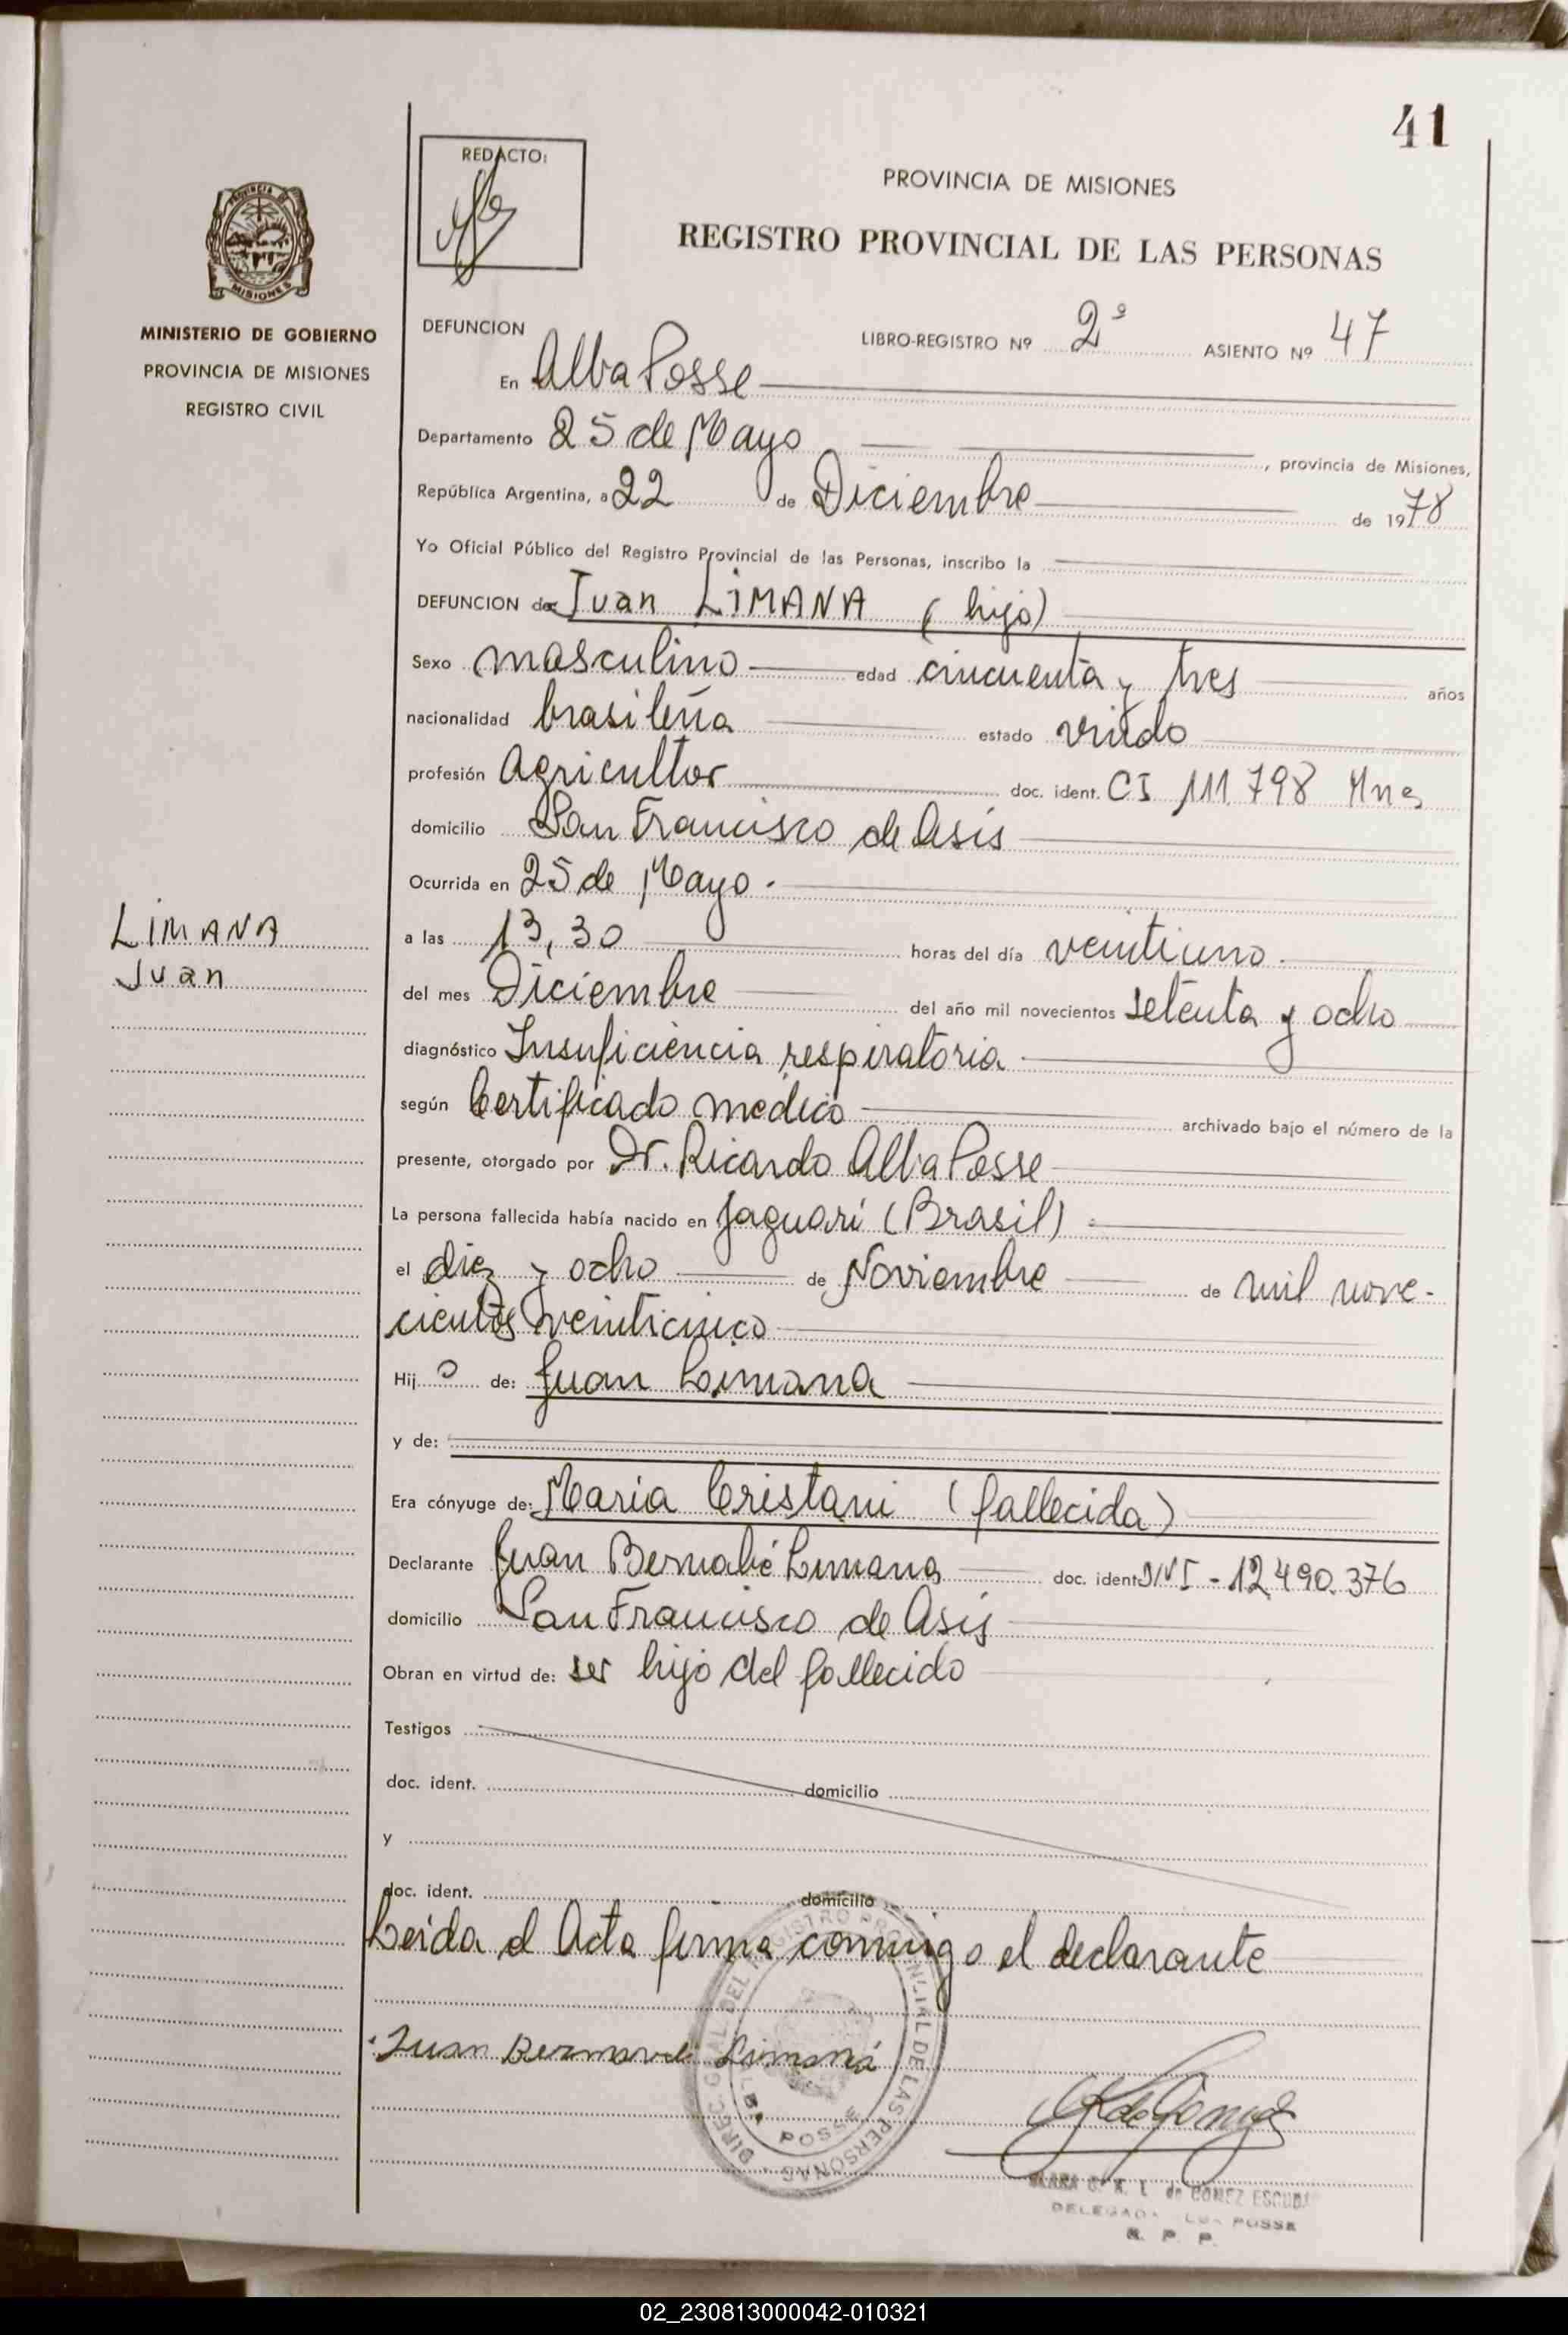 41
REDACTO:
PROVINCIA DE MISIONES
REGISTRO PROVINCIAL DE LAS PERSONAS
PROVINCIA
MISIONES
MINISTERIO DE GOBIERNO
PROVINCIA DE MISIONES
REGISTRO CIVIL
DEFUNCION
LIBRO-REGISTRO Nº 2º ASIENTO Nº 47
En Alba Posse
Departamento 25 de Mayo, provincia de Misiones,
República Argentina, a 22 de Diciembre de 1978
Yo Oficial Público del Registro Provincial de las Personas, inscribo la
DEFUNCION de Juan LIMANA (hijo)
Sexo masculino edad cincuenta y tres años
nacionalidad brasileña estado viudo
profesión Agricultor doc. ident. CI 111.798 Mnes
domicilio San Francisco de Asís
Ocurrida en 25 de Mayo.
LIMANA
Juan
a las 13,30 horas del día veintiuno.
del mes Diciembre del año mil novecientos setenta y ocho
diagnóstico Insuficiencia respiratoria
según Certificado medico archivado bajo el número de la
presente, otorgado por Dr. Ricardo Alba Posse
La persona fallecida había nacido en Jaguarí (Brasil)
el diez y ocho de Noviembre de mil nove-
cientos veinticinco
Hijo de: Juan Limana
y de:
Era cónyuge de: Maria Cristani (fallecida)
Declarante Juan Bernabé Limana doc. ident. DNI - 12.490.376
domicilio San Francisco de Asís
Obran en virtud de: ser hijo del fallecido
Testigos
doc. ident. domicilio
y
doc. ident. domicilio
Leída el Acta firma conmigo el declarante
Juan Limaná
DIREC. GRAL. DEL REGISTRO PROVINCIAL DE LAS PERSONAS
ALBA POSSE
de GOMEZ
POSSE
R. P. P.
02_230813000042-010321